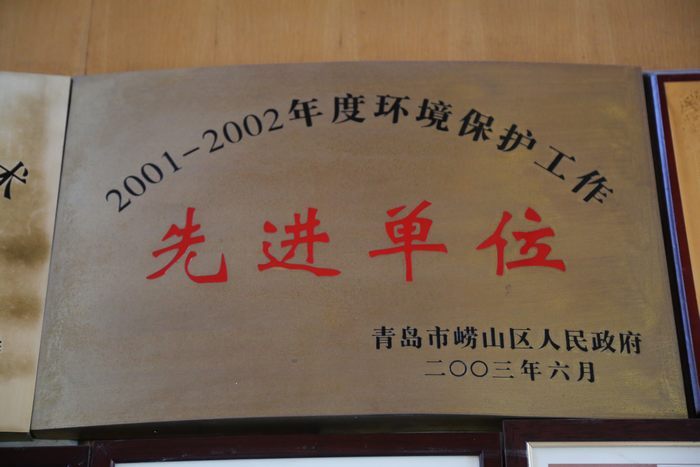 2001-2002年度环境保护工作
先进单位
青岛市崂山区人民政府
二〇〇三年六月